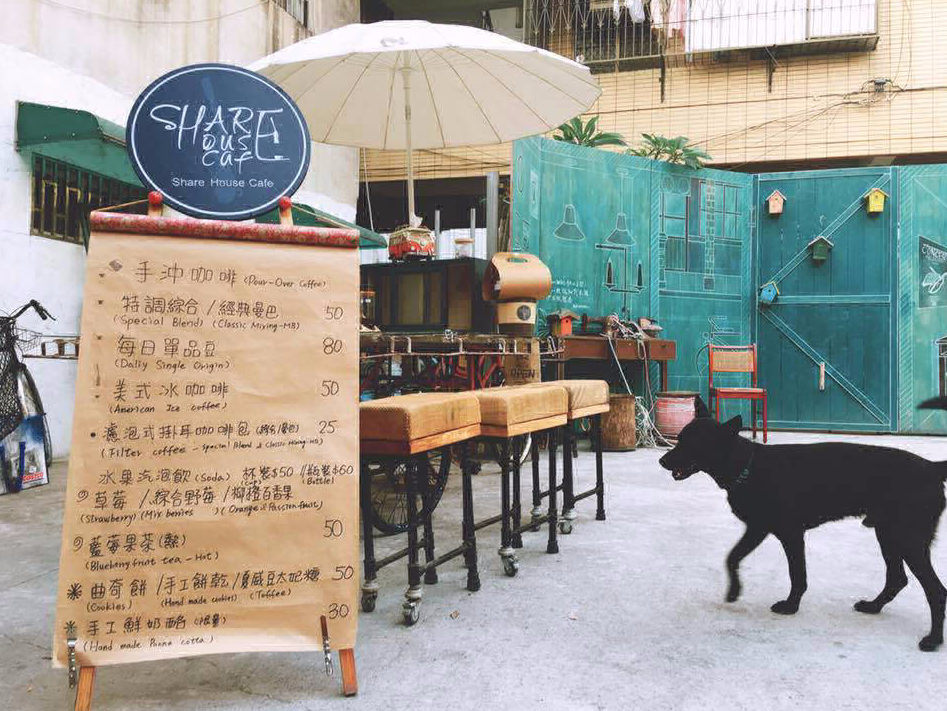 SHARE
HOUSE
CafE
Share House Cafe
手沖咖啡 (Pour-Over Coffee)
特調綜合 /經典曼巴 50
(Special Blend) (Classic Mixing-MB)
每日單品豆 80
(Daily Single Origin)
美式冰咖啡 50
(American Ice coffee)
濾泡式掛耳咖啡包 25
(Filter coffee - Special Blend & Classic Mixing-MB)
水果汽泡飲 (Soda) 杯裝$50 //瓶裝$60
(Bottle)
草莓 /綜合野莓 /柳橙百香果
(Strawberry) (Mix berries ) (Orange & Passion fruit)
50
藍莓果茶(熱)
(Blueberry fruit tea - Hot)
曲奇餅 /手工餅乾 /夏威豆太妃糖 50
(Cookies) (Hand made cookies) (Toffee)
30
手工鮮奶酪 (限量)
(Hand made Panna cotta)
OPEN